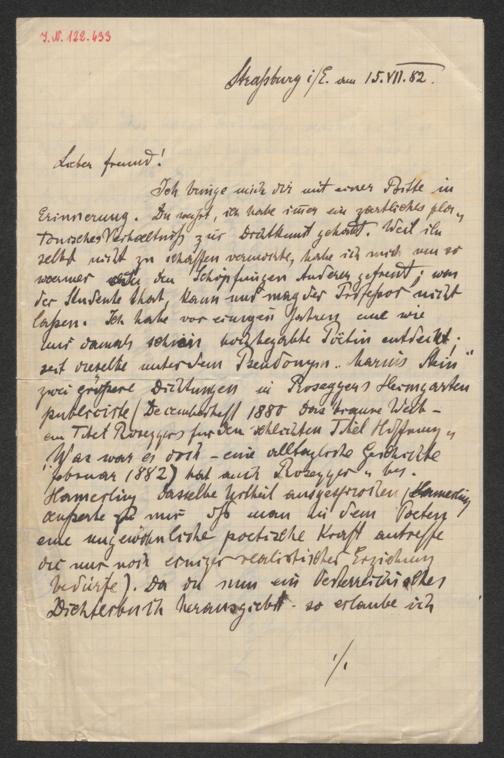 J.N. 122.633
Straßburg i/E. am 15.VII.82.
Lieber Freund!
Ich bringe mich dir mit einer Bitte in
Erinnerung. Du weißt, ich habe immer ein zärtliches pla„
tonisches Verhaeltniß zur Dichtkunst gehabt. Weil ich
selbst nicht zu schaffen vermochte, habe ich mich um so
waermer an den Schöpfungen Anderer gefreut; was
der Studente that, kann und mag der Professor nicht
laßen. Ich habe vor einigen Jahren eine wie
mir damals schien hochbegabte Poëtin entdeckt;
seit dieselbe unter dem Pseudonym „Marius Stein"
zwei größere Dichtungen in Roseggers Heimgarten
publicirte (Decemberheft 1880 Das braune Weib –
ein Titel Roseggers für den schlechten Titel Hoffnung „
Was war es doch – eine alltägliche Geschichte
Februar 1882) hat auch Rosegger u bes.
Hamerling dasselbe Urtheil ausgesprochen (Hamerling
äußerte zu mir daß man in dem Poeten
eine ungewöhnliche poetische Kraft antreffe
die nur noch einiger realistischer Erziehung
bedürfe). Da du nun ein Oesterreichisches
Dichterbuch herausgiebst – so erlaube ich
./.